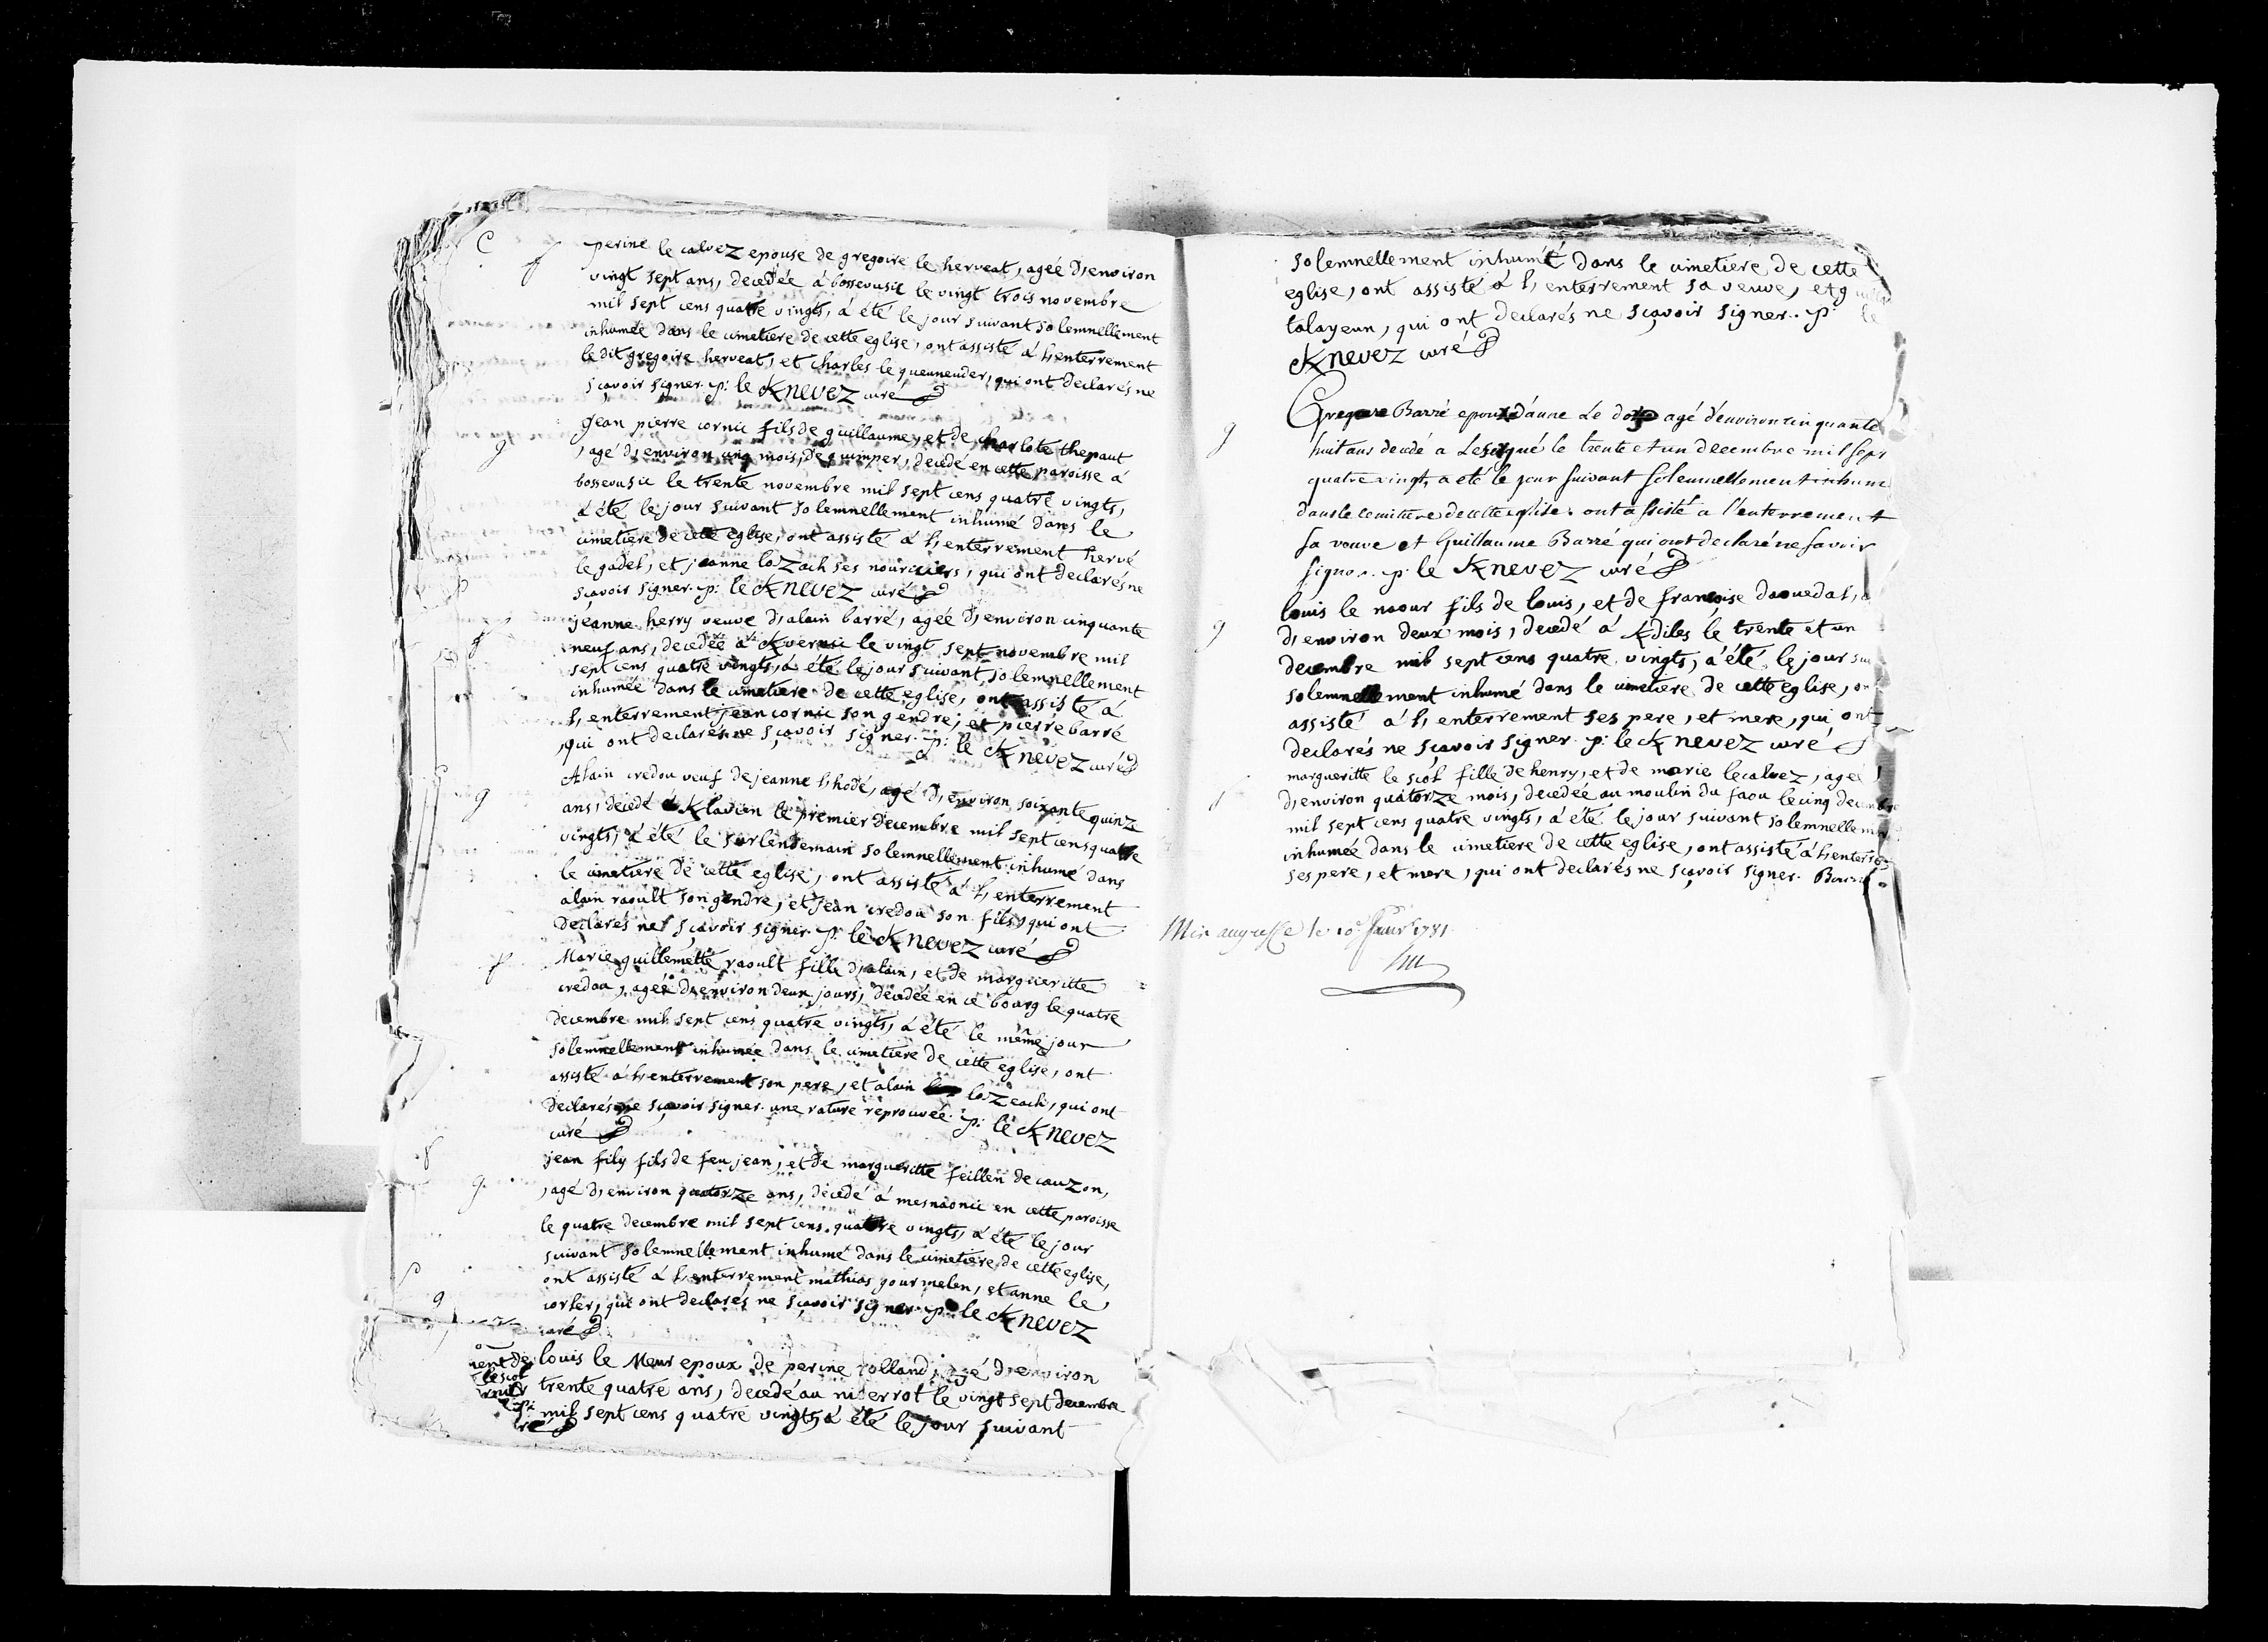 C
f
perine le calvez epouse de gregoire le herveat, agée d'environ
vingt sept ans, decedée á bossevusic le vingt trois novembre
mil sept cens quatre vingts, á été le jour suivant solemnellement
inhumée dans le cimetiere de cette eglise, ont assisté á l'enterrement
ledit gregoire herveat, et charles le queuneuder, qui ont declarés ne
sçavoir signer. p: le Knevez curé
g
jean pierre cornic fils de guillaume, et de charlote thepaut
, agé d'environ cinq mois, de quimper, decedé en cette paroisse á
bossevusic le trente novembre mil sept cens quatre vingts,
á été le jour suivant solemnellement inhumé dans le
cimetiere de cette eglise, ont assisté á l'enterrement hervé
le gadel, et jeanne lozach ses nourciers, qui ont declarés ne
sçavoir signer. p: le Knevez curé
f
jeanne herry veuve d'alain barré, agée d'environ cinquante
neuf ans, decedée á Kvernic le vingt sept novembre mil
sept cens quatre vingts, á été le jour suivant solemnellement
inhumée dans le cimetiere de cette eglise, ont assisté á
l'enterrement jean cornic son gendre, et pierre barré
, qui ont declarés ne sçavoir signer. p: le Knevez curé
g
Alain credou veuf de jeanne l'hodé, agé d'environ soixante quinze
ans, decedé á Klavien le premier decembre mil sept cens quatre
vingts, á été le surlendemain solemnellement inhumé dans
le cimetiere de cette eglise, ont assisté á l'enterrement
alain raoult son gendre, et jean credou son fils, qui ont
declarés ne sçavoir signer. p: le Knevez curé
f
Marie guillemette raoult fille d'alain, et de margueritte
credou, agée d'environ deux jours, decedée en ce bourg le quatre
decembre mil sept cens quatre vingts, á été le même jour
solemnellement inhumée dans le cimetiere de cette eglise, ont
assisté á l'enterrement son pere, et alain lozeach, qui ont
declarés ne sçavoir signer. une rature reprouvée. p: le Knevez
curé
g
jean fily fils de feu jean, et de margueritte feillen de cauzon,
, agé d'environ quatorze ans, decedé á mesnaonic en cette paroisse
le quatre decembre mil sept cens quatre vingts, á été le jour
suivant solemnellement inhumé dans le cimetiere de cette eglise,
ont assisté á l'enterrement mathias gourmelen, et anne le
corler, qui ont declarés ne sçavoir signer. p: le Knevez
curé
g
louis le Meur epoux de perine rolland, agé d'environ
trente quatre ans, decedé au niverrot le vingt sept decembre
mil sept cens quatre vingts, á été le jour suivant
ment de
le scol
solemnellement inhumé dans le cimetiere de cette
eglise, ont assisté á l'enterrement sa veuve, et
talayeun, qui ont declarés ne sçavoir signer. p: le
Knevez curé
g
Gregoire Barré epoux d'anne Le agé d'environ cinquante
huit ans decedé a le trente et un decembre mil sept
quatre vingt, a eté le jour suivant solennellement inhumé
dans le cemitiere de cette eglise. ont assisté a l'enterrement
sa veuve et Guillaume Barré qui ont declaré ne savoir
signer. p: le Knevez curé
g
louis le naour fils de louis, et de françoise daouedal,
d'environ deux mois, decedé á Kdiles le trente et un
decembre mil sept cens quatre vingts, á été le jour
solemnellement inhumé dans le cimetiere de cette eglise,
assisté á l'enterrement ses pere, et mere, qui ont
declarés ne sçavoir signer. p: le Knevez curé
f
margueritte le scol fille de henry, et de marie le calvez, agée
d'environ quatorze mois, decedée au moulin du faou le cinq decembre
mil sept cens quatre vingts, á été le jour suivant solemnellement
inhumée dans le cimetiere de cette eglise, ont assisté á
ses pere, et mere, qui ont declarés ne sçavoir signer.
Mis au greffe le 10 1781